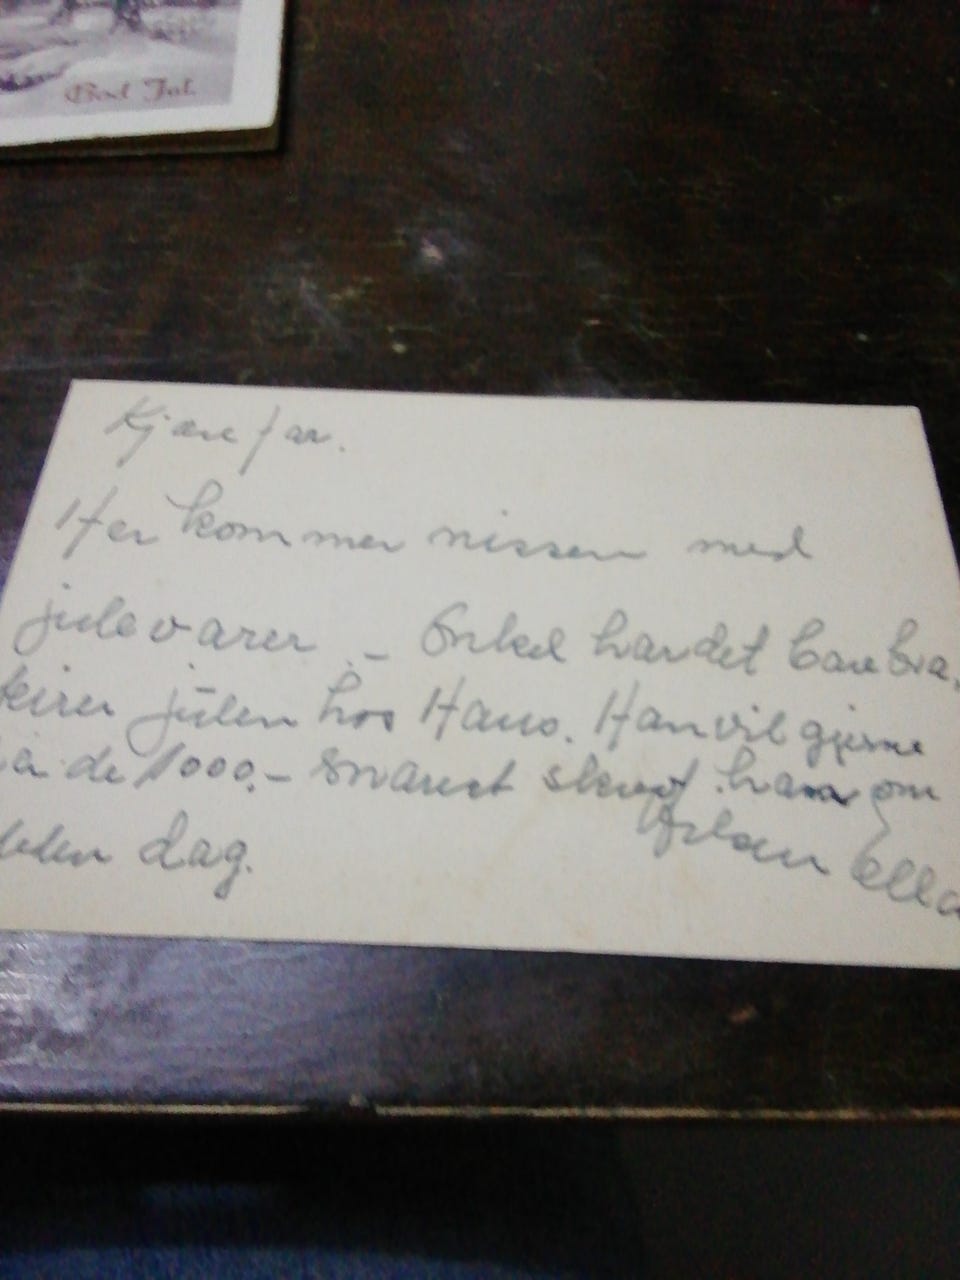 God Jul.
Kjære far.
Her kommer nissen med
julevarer – Onkel har det bare bra,
feirer julen hos Hans. Han vil gjerne
de 1000.– snarest skrevet ham om
dag.
Ella